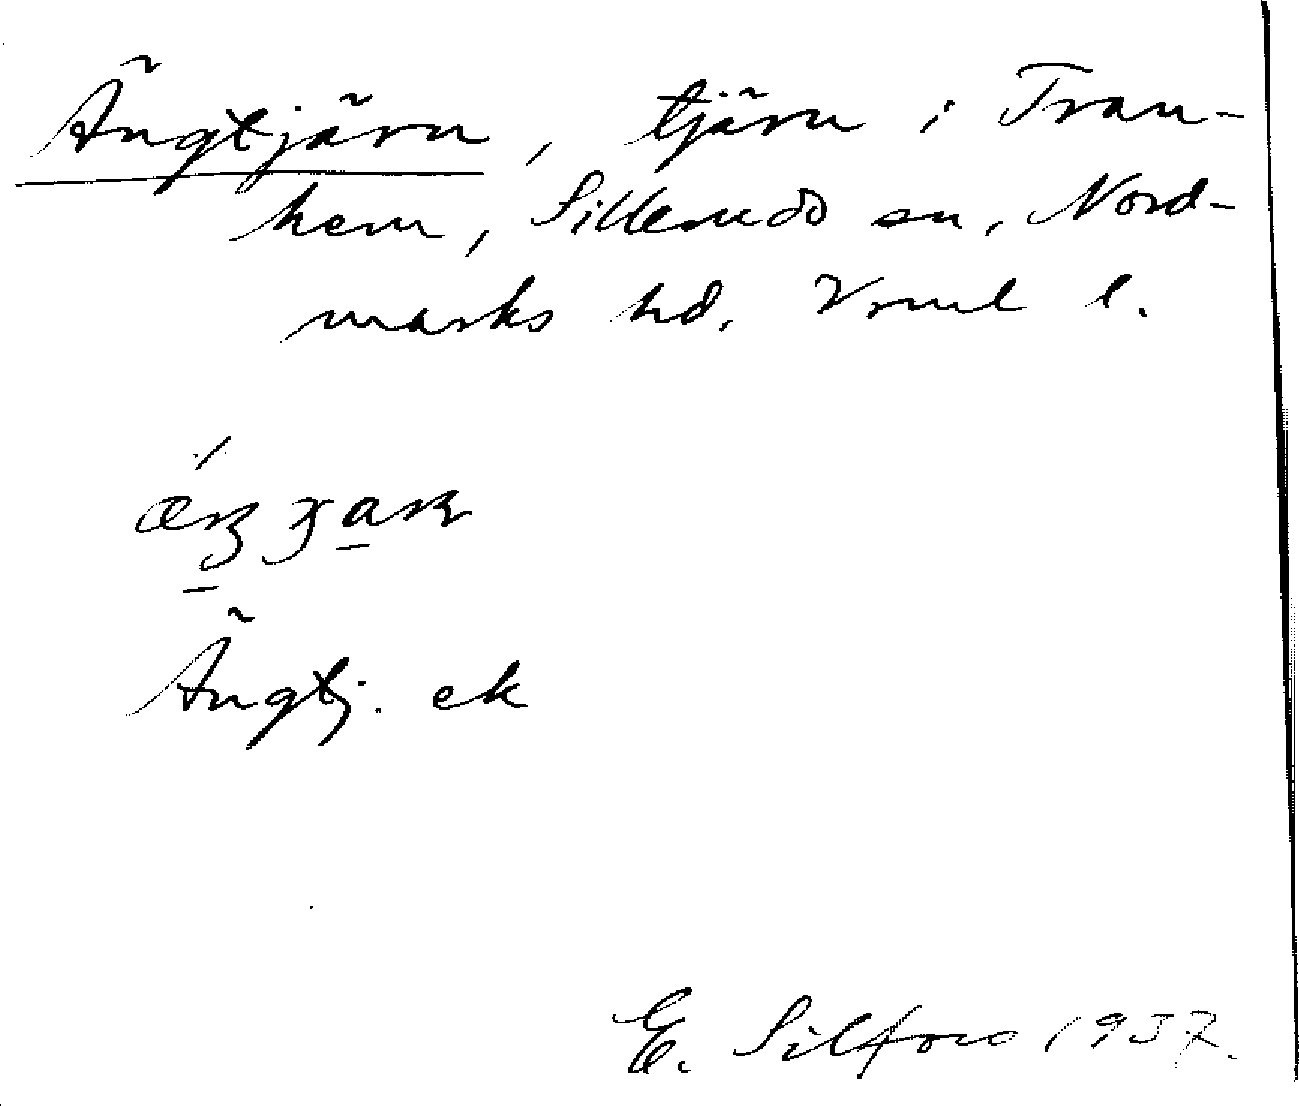 Ängtjärn, tjärn i Tran-
hem, Sillerudo sn, Nord-
marks hd. Vrml l.
Ängtj. ek
E. Silfors 1937.